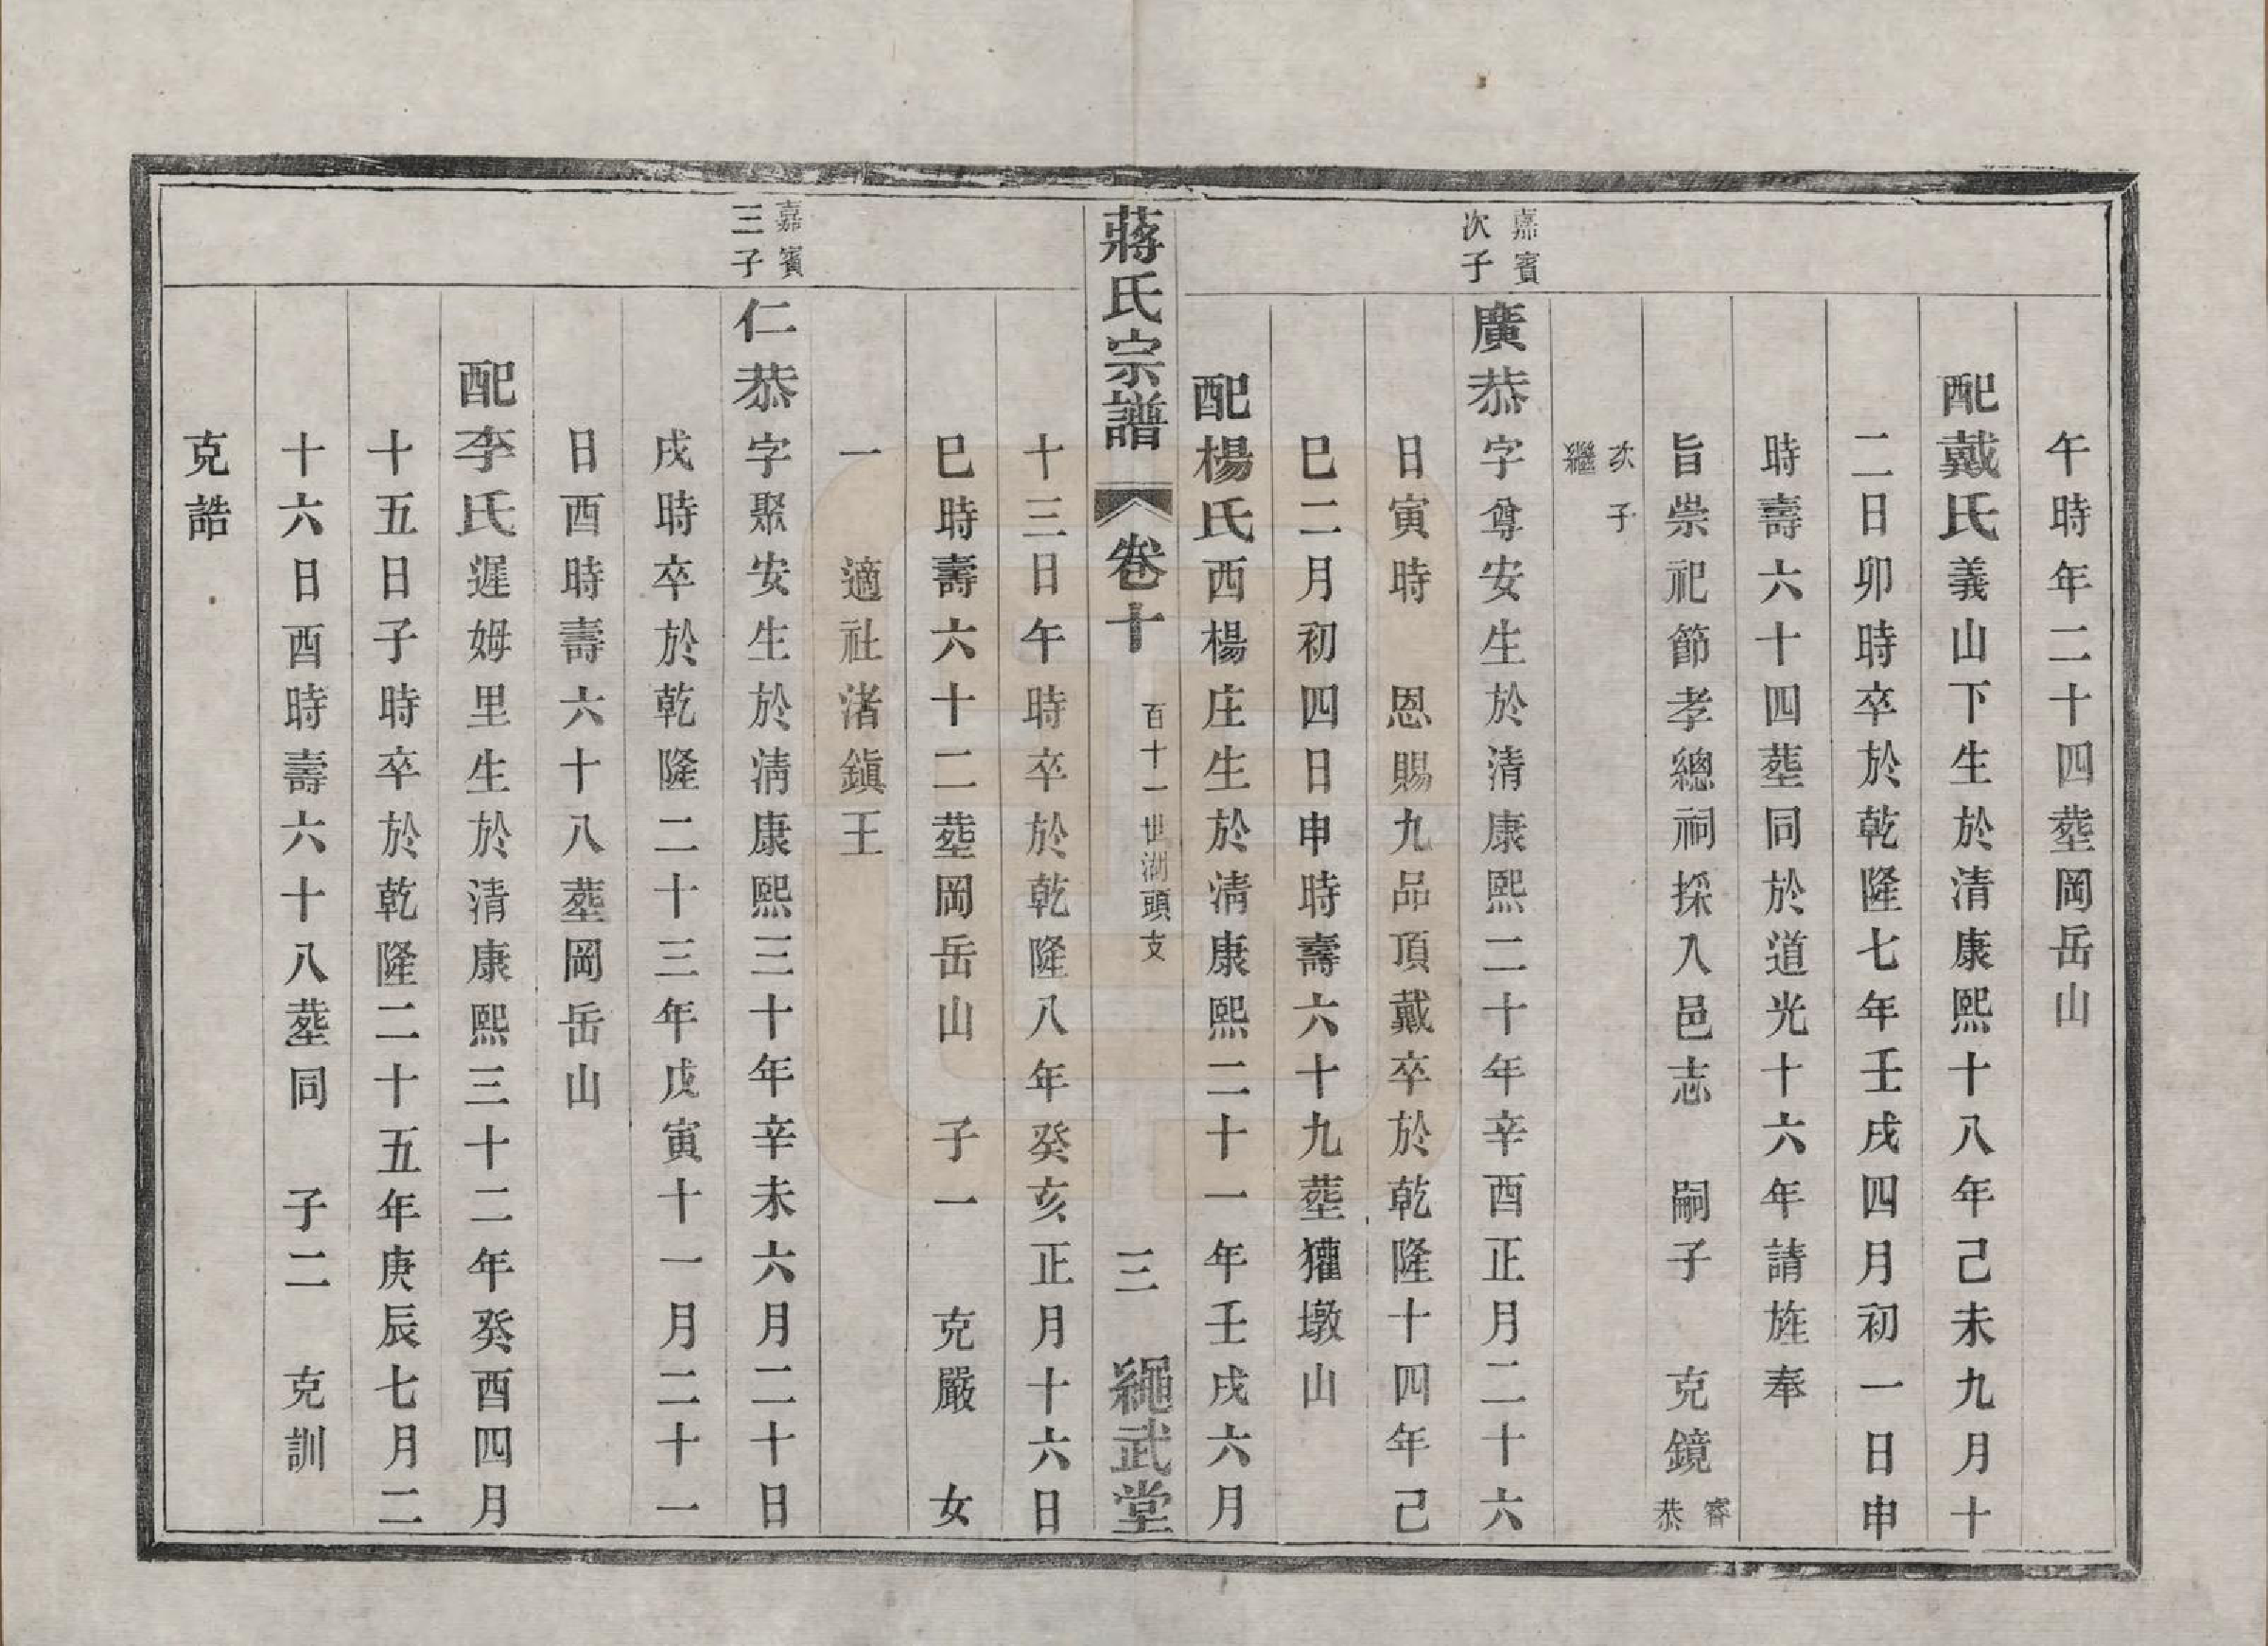 午時年二十四塟岡岳山
配戴氏義山下生於清康熙十八年己未九月十
二日卯時卒於乾隆七年壬戌四月初一日申
時壽六十四塟同於道光十六年請旌奉
旨崇祀節孝總祠採入邑志 嗣子 克鏡睿恭
次子繼
嘉賓次子
廣恭字尊安生於清康熙二十年辛酉正月二十六
日寅時 恩賜九品頂戴卒於乾隆十四年己
巳二月初四日申時壽六十九塟獾墩山
配楊氏西楊庄生於清康熙二十一年壬戌六月
蔣氏宗譜 卷十 百十一世湖頭支 三 繩武堂
十三日午時卒於乾隆八年癸亥正月十六日
巳時壽六十二塟岡岳山 子一 克嚴 女
一 適社渚鎮王
嘉賓三子
仁恭字聚安生於清康熙三十年辛未六月二十日
戌時卒於乾隆二十三年戊寅十一月二十一
日酉時壽六十八塟岡岳山
配李氏遲姆里生於清康熙三十二年癸酉四月
十五日子時卒於乾隆二十五年庚辰七月二
十六日酉時壽六十八塟同 子二 克訓
克誥